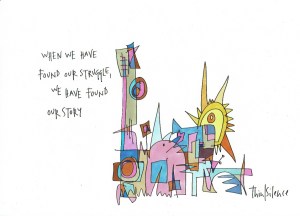 WHEN WE HAVE
FOUND OUR STRUGGLE,
WE HAVE FOUND
OUR STORY
ThinkSilence